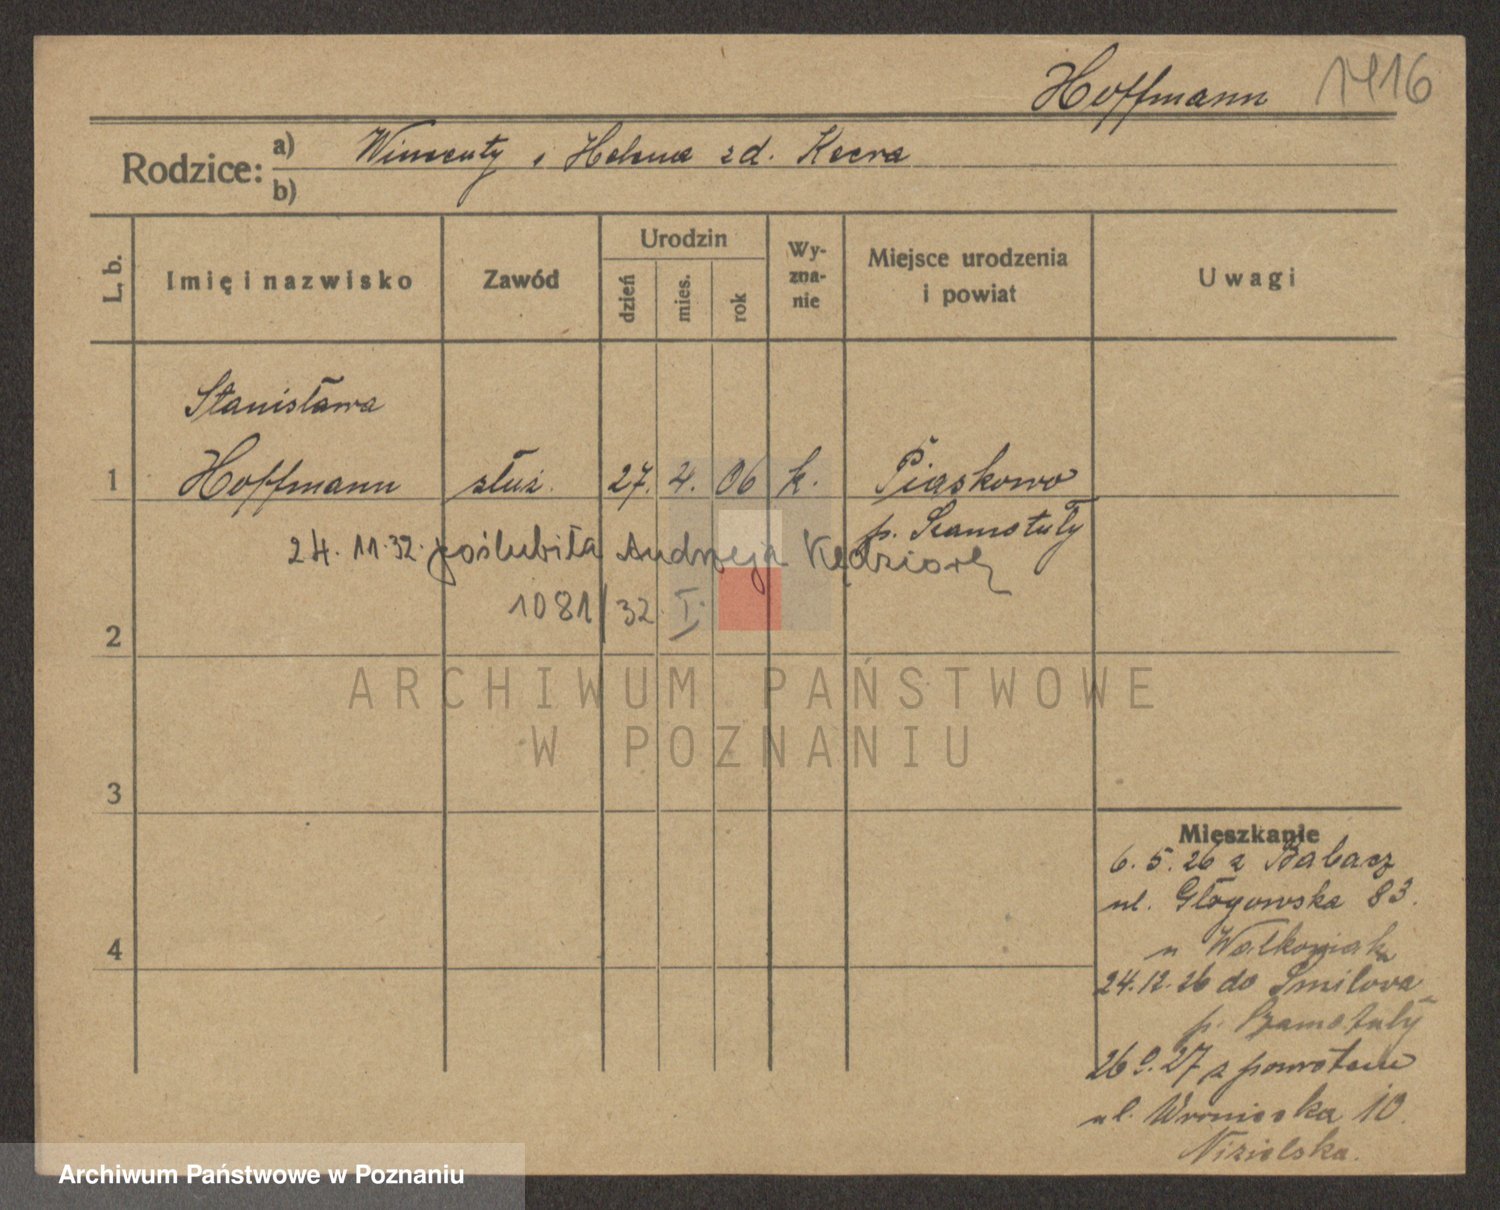 Hoffmann 1416
Rodzice: a) Wincenty i Helena zd. Kocra
b)
L. b.
Imię i nazwisko
Zawód
Urodzin
dzień
mies.
rok
Wy-
zna-
nie
Miejsce urodzenia
i powiat
Uwagi
Stanisława
1 Hoffmann służ. 27. 4. 06 k. Piaskowo
p. Szamotuły
24. 11. 32. poślubiła Andrzeja Kędziorę
1081/32. I.
2
ARCHIWUM PAŃSTWOWE
W POZNANIU
3
Mieszkanie
6. 5. 26 z Babacz
ul. Głogowska 83.
u Walkowiak
4
24. 12. 26 do Śmiłowa
p. Szamotuły
27 z powrotem
ul. Wroniecka 10.
Nizielska.
Archiwum Państwowe w Poznaniu